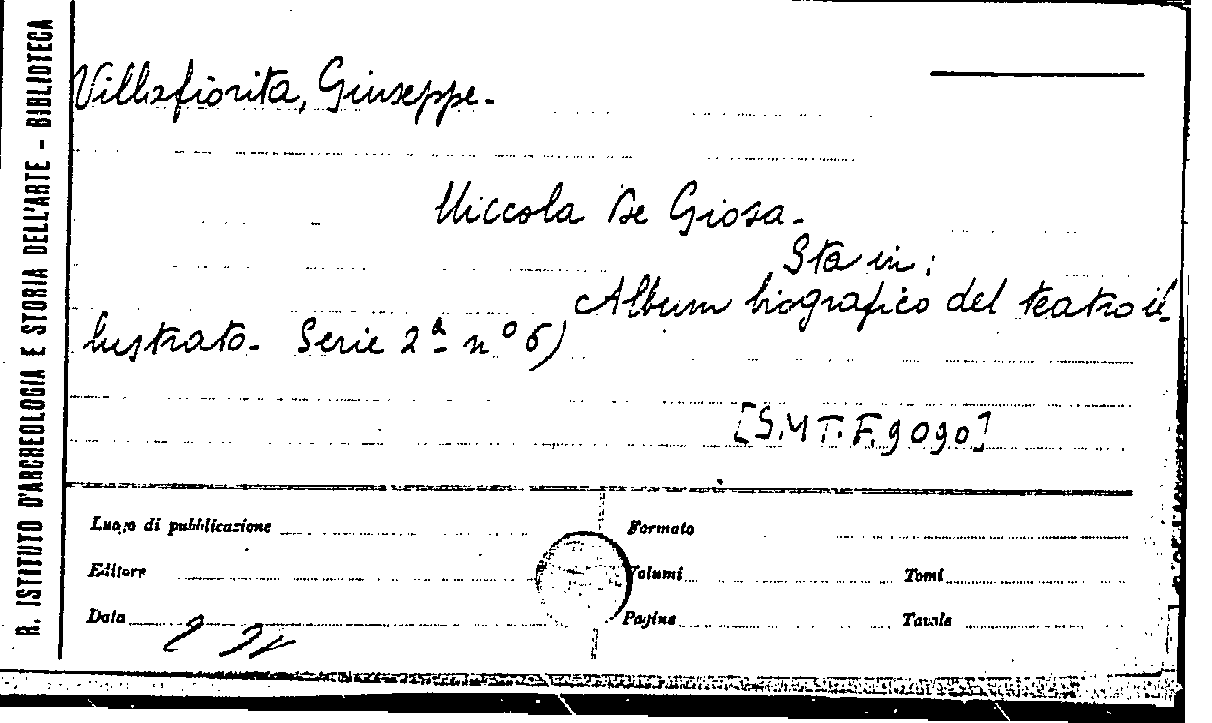 R. ISTITUTO D'ARCHEOLOGIA E STORIA DELL'ARTE - BIBLIOTECA
Villafiorita, Giuseppe.
Niccola De Giosa.
Sta in:
Album biografico del teatro il-
lustrato. Serie 2ª n° 6)
[S.M T. F. 9090]
Luogo di pubblicazione
Formato
Editore
Volumi
Tomi
Data
Pagine
Tavole